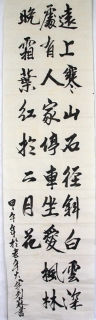 遠上寒山石徑斜白雲深
處有人家停車坐愛楓林
晚霜葉紅於二月花
甲午年於